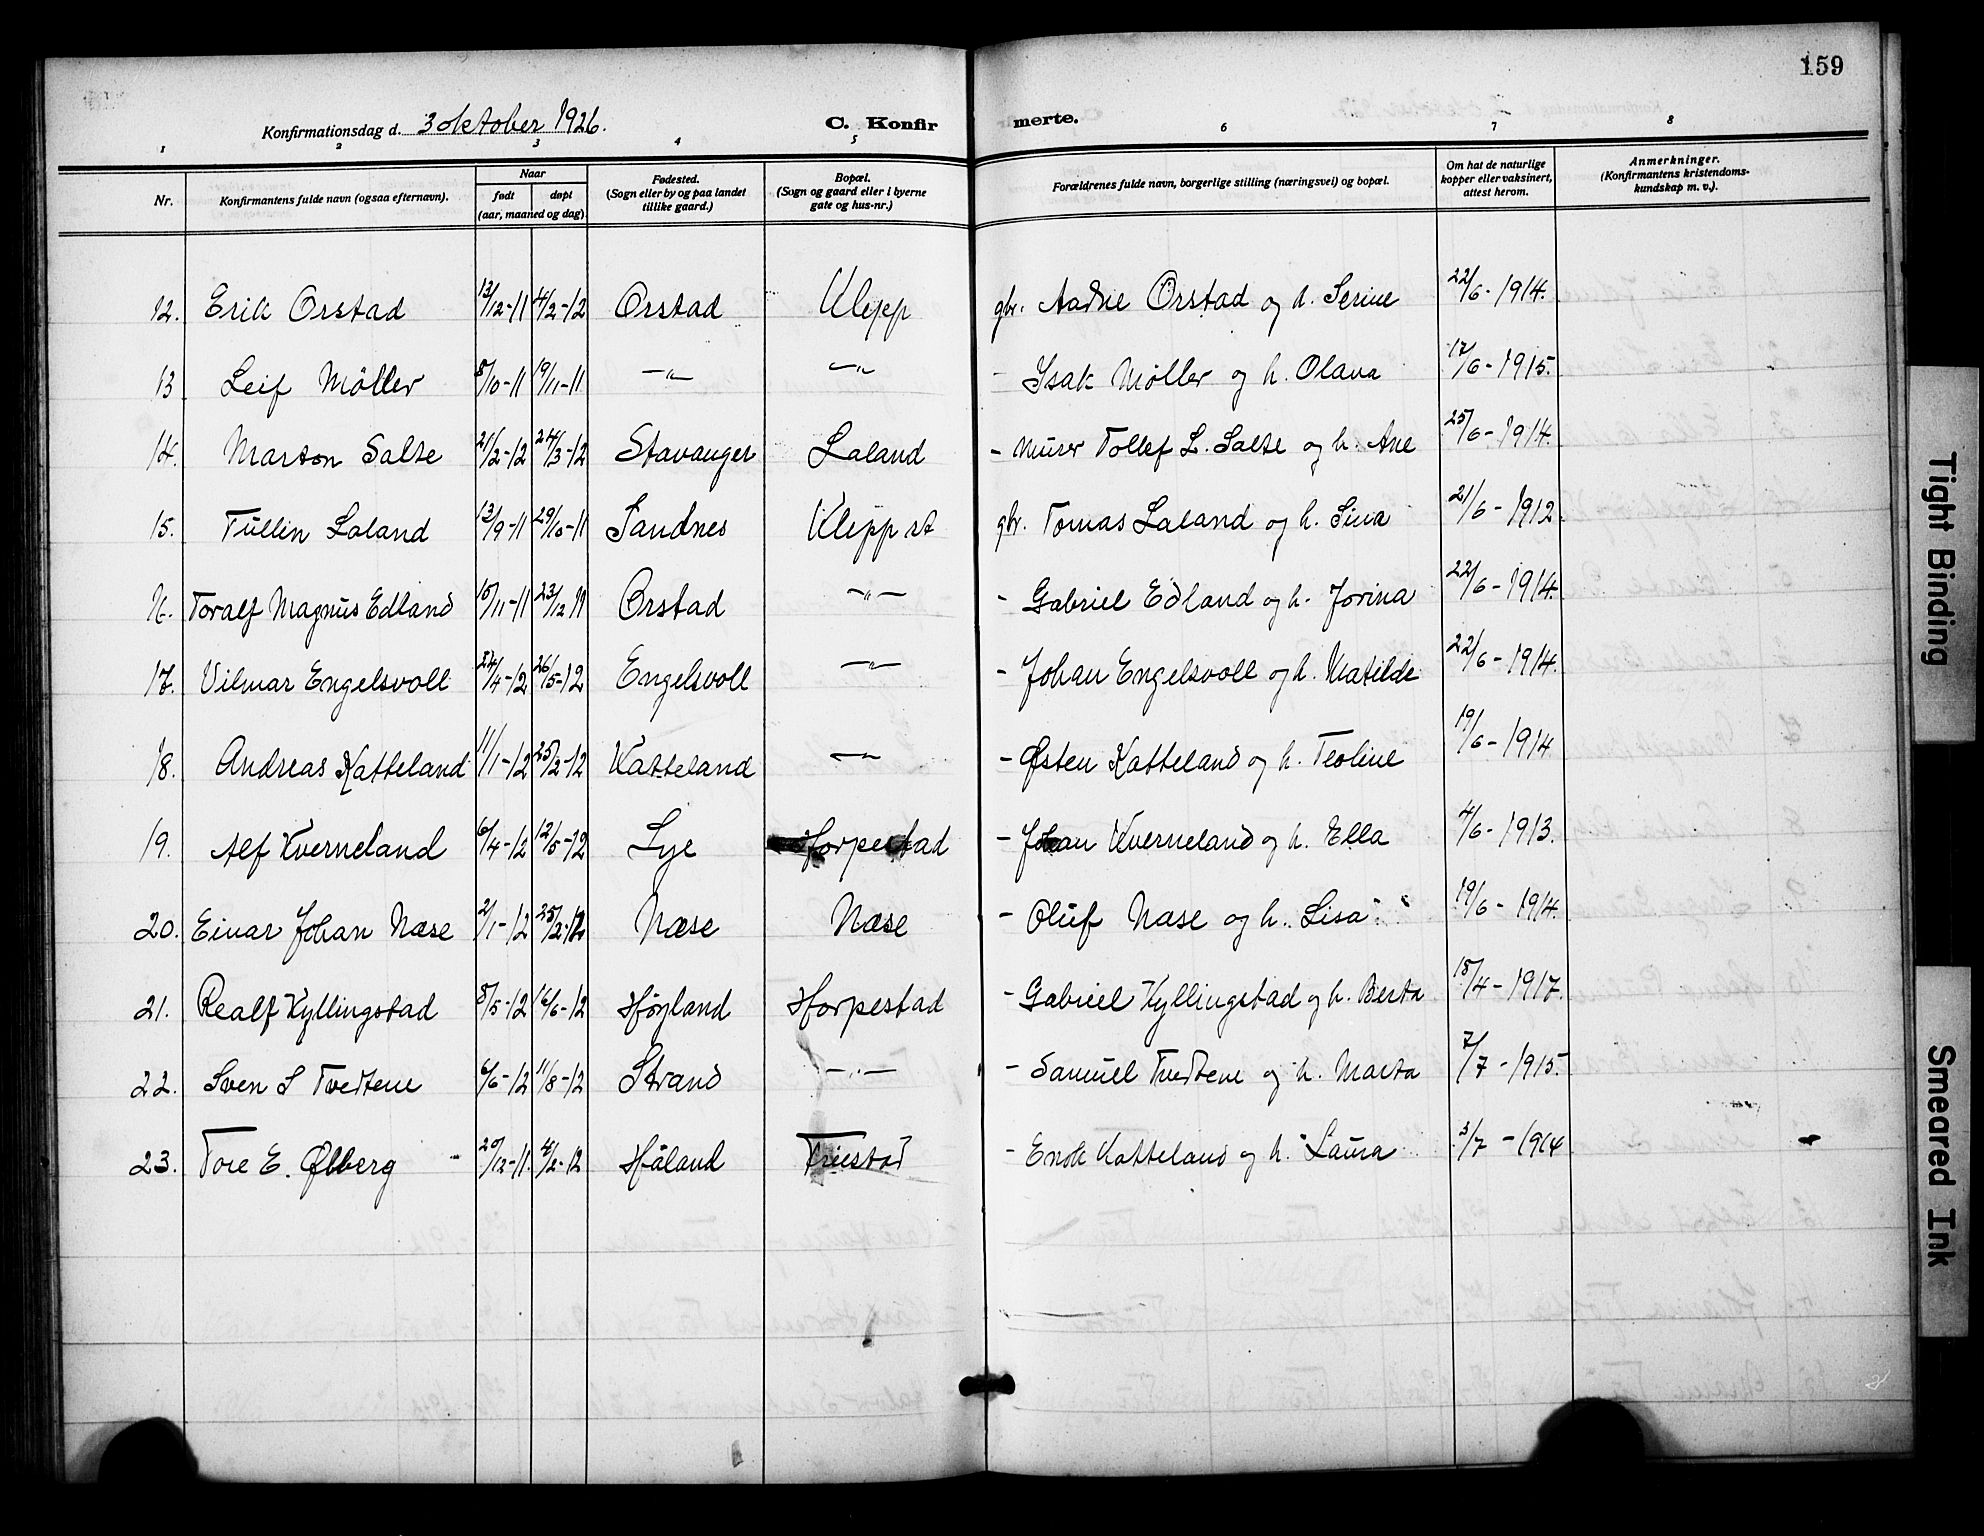 159
Konfirmationsdag d. 3 oktober 1926. C. Konfir merte.
1 2 3 4 5 6 7 8
Nr. Konfirmantens fulde navn (ogsaa efternavn). Naar født døpt (aar, maaned og dag) Fødested. (Sogn eller by og paa landet tillike gaard.) Bopæl. (Sogn og gaard eller i byerne gate og hus-nr.) Forældrenes fulde navn, borgerlige stilling (næringsvei) og bopæl. Om hat de naturlige kopper eller vaksinert, attest herom. Anmerkninger. (Konfirmantens kristendoms-kundskap m. v.).
12. Erik Orstad 13/12-11 4/2-12 Orstad Klepp gbr. Aadne Orstad og h. Serine 22/6-1914.
13 Leif Møller 8/10-11 19/11-11 —„— —„— - Isak Møller og h. Olava 17/6-1915.
14. Marton Salte 21/2-12 24/3-12 Stavanger Laland - Murer Tollef L. Salte og h. Ane 25/6-1914.
15. Tullin Laland 13/9-11 29/10-11 Sandnes Klepp st gbr. Tomas Laland og h. Sina 21/6-1912.
16. Toralf Magnus Edland 15/11-11 23/12 11 Orstad —„— - Gabriel Edland og h. Jorina 22/6-1914.
17. Vilmar Engelsvoll 24/4-12 26/5-12 Engelsvoll —„— - Johan Engelsvoll og h. Matilde 22/6-1914.
18. Andreas Katteland 11/1-12 25/2-12 Katteland —„— - Østen Katteland og h. Teoline 19/6-1914
19. Alf Kverneland 6/4-12 12/5-12 Lye Horpestad - Johan Kverneland og h. Ella 4/6-1913.
20. Einar Johan Næse 2/1-12 25/2-12 Næse Næse - Oluf Næse og h. Lisa 19/6-1914.
21. Realf Kyllingstad 8/5-12 16/6-12 Høyland Horpestad - Gabriel Kyllingstad og h. Berta 18/4-1917.
22. Sven S Tvedtene 6/6-12 11/8-12 Strand —„— - Samuel Tvedtene og h. Marta 7/7-1915.
23. Tore E. Ølberg 20/12-11. 4/2-12 Håland Friestad - Enok Katteland og h. Laura 3/7-1914
Tight Binding
Smeared Ink